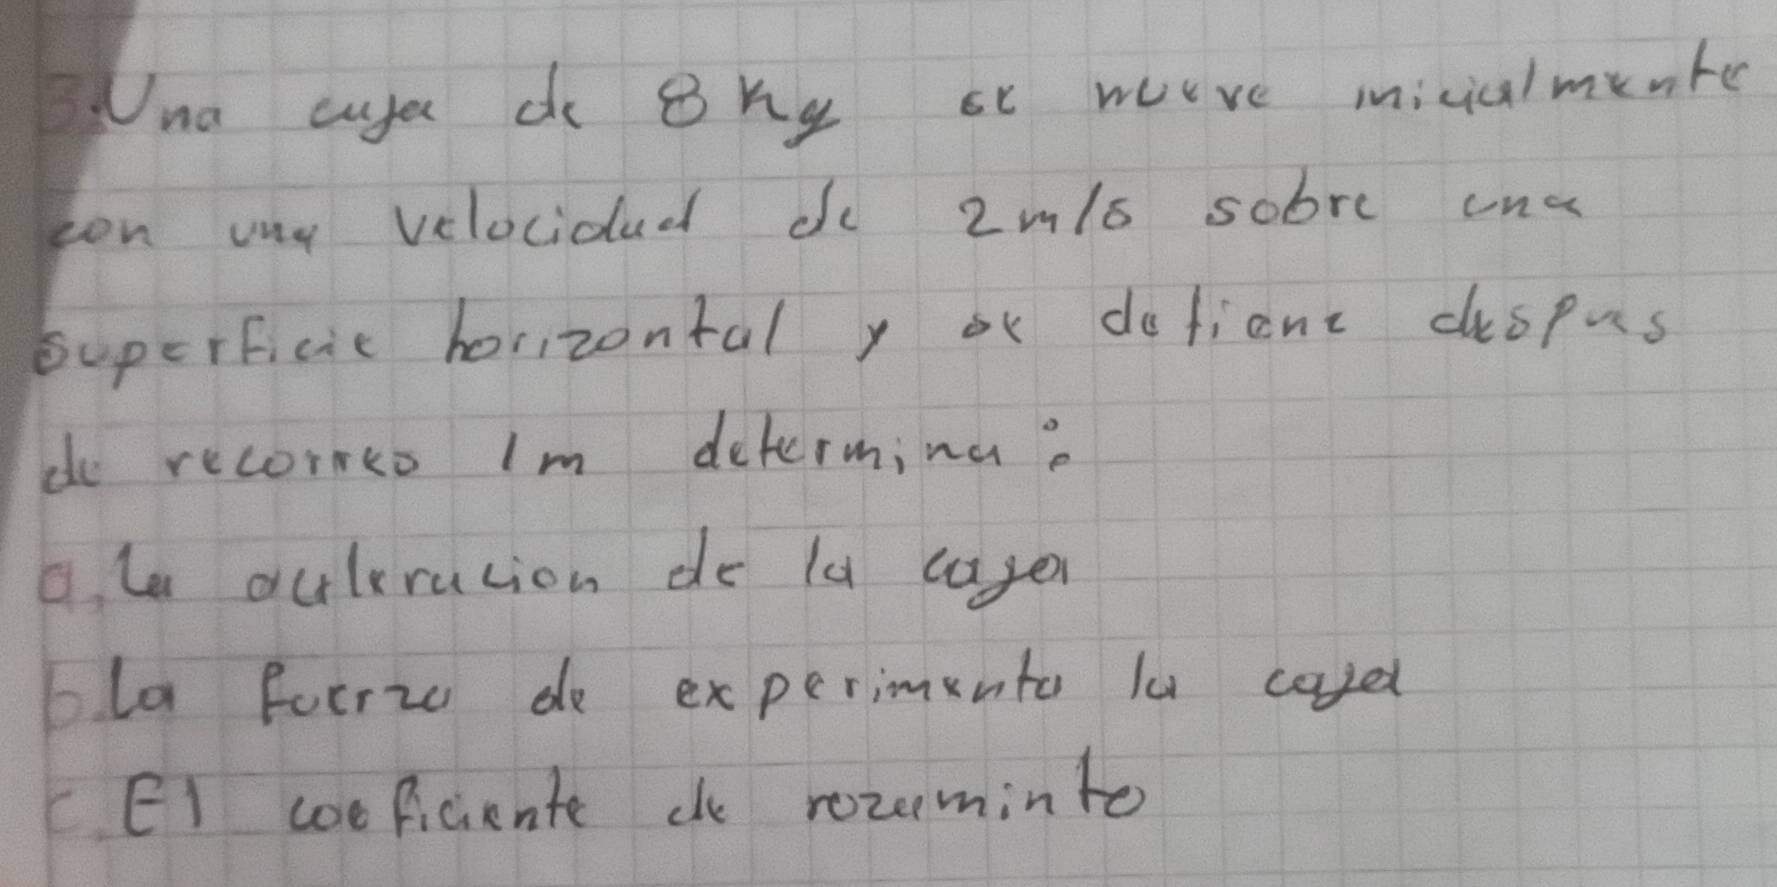 3. Una caja de 8 Kg se mueve inicialmente
con una velocidad de 2 m/s sobre una
superficie horizontal y se detiene despues
de recorres 1 m determina:
a. La aceleracion de la caja
b. La fuerza de experimenta la caja
c. El coeficiente de rozaminto